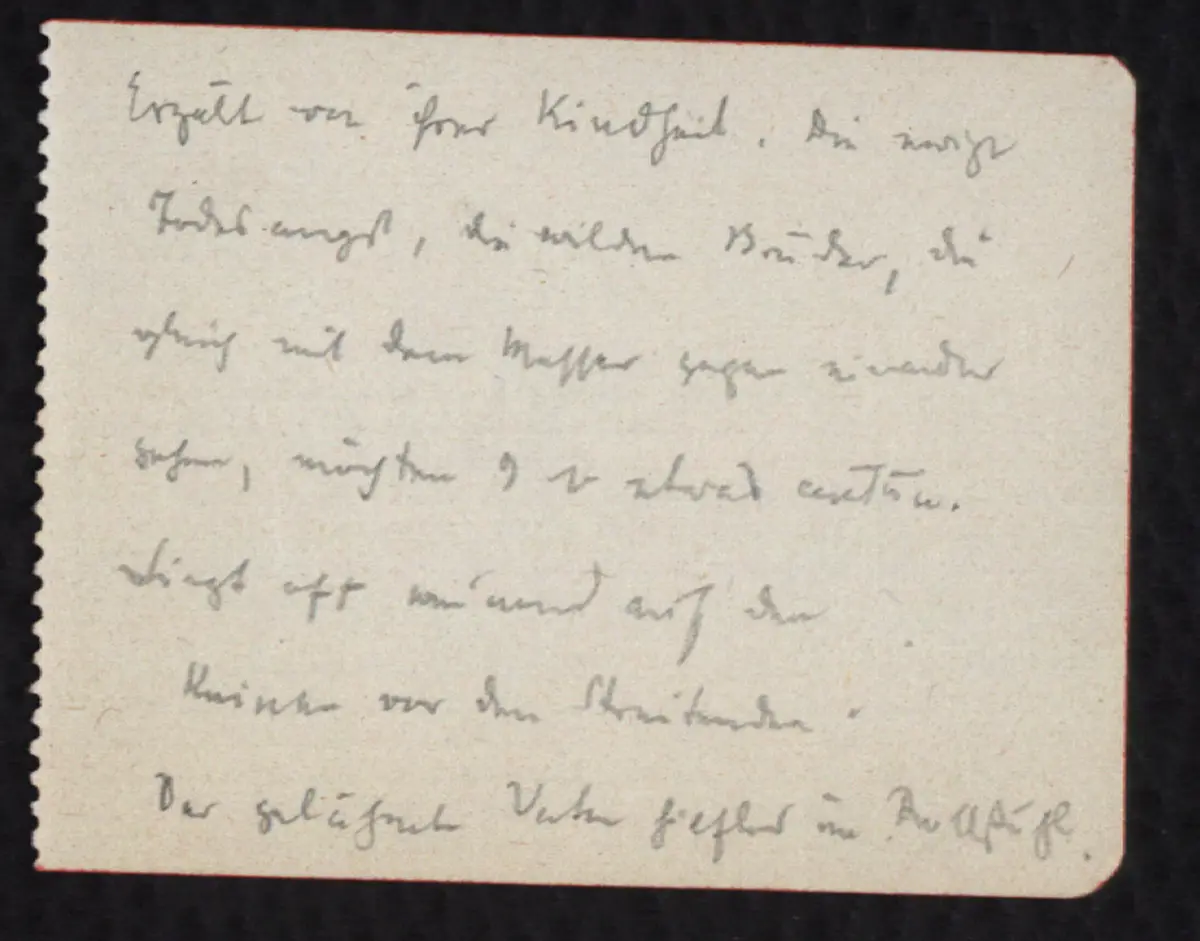 Erzält von ihrer Kindheit. Die ewige
Todesangst, die wilden Brüder, die
gleich mit dem Messer gegen einander
gehen, möchten etwas antun.
Liegt oft weinend auf den
Knieen vor den Streitenden.
Der gelähmte Vater hilflos im Rollstuhl.